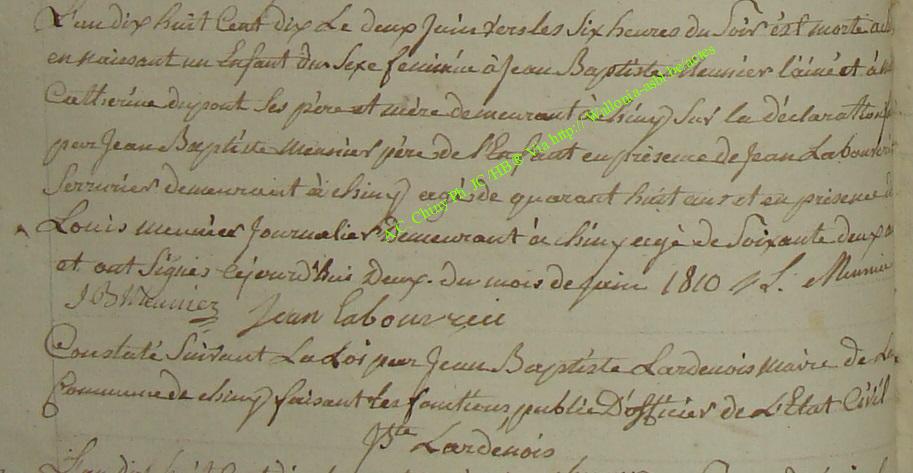 L'an dix huit Cent dix Le deux Juin vers les Six heures du Soir est morte au
en naissant un Enfant du Sexe feminin à Jean Baptiste Meunier l'ainé et à
Catherine dupont Ses père et mère demeurant à chiny Sur la déclaration
par Jean Baptiste Meunier père de l'Enfant en présence de Jean
Serrurier demeurant à chiny agé de quarant huit ans et en présence
Louis meunier Journalier demeurant à chiny agé de Soixante deux a
et ont Signés cejourd'hui Deux du mois de juin 1810 L. Meunier
J B Meunier
Jean
Constaté Suivant La Loi par Jean Baptiste Lardenois Maire de La
Commune de chiny faisant les fonctions public D'officier de L'Etat Civil
JBte Lardenois
L'an dix huit Cent dix
A.C. Chiny Ph. JC /HB @ Via http:// Wallonia-asbl.be/actes